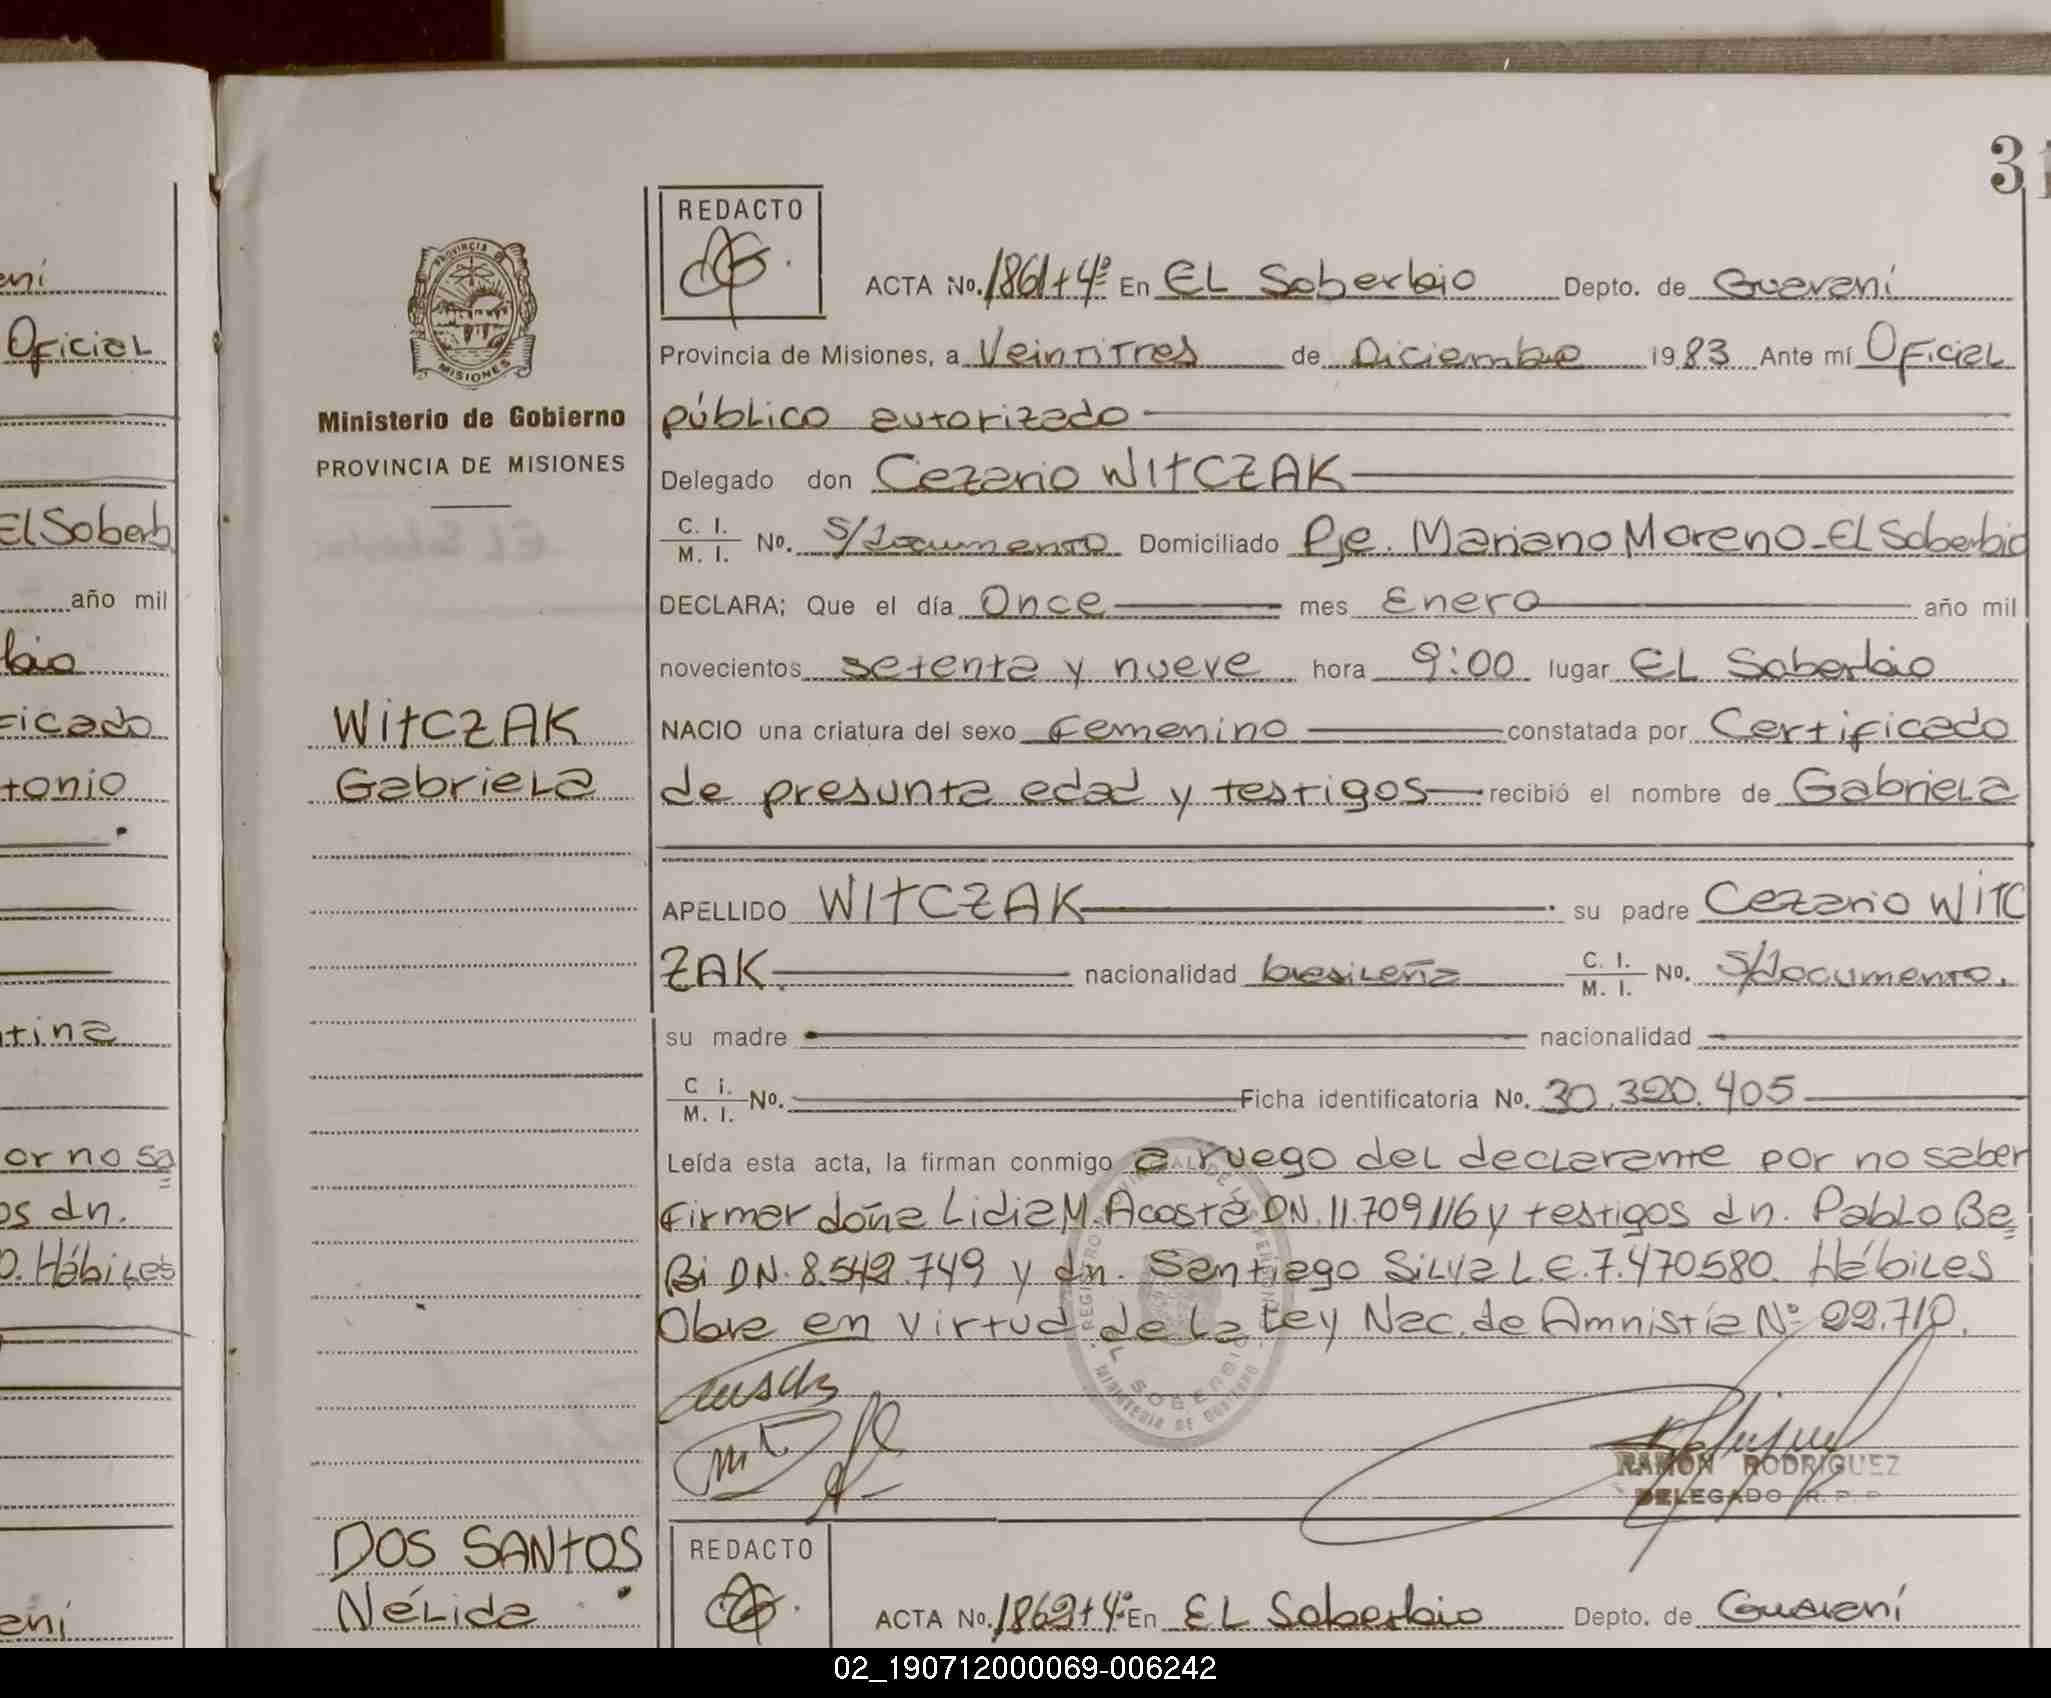 31
REDACTO
ACTA No. 1861+4º En EL Soberbio Depto. de Guaraní
Provincia de Misiones, a Veintitres de Diciembre 1983 Ante mí Oficial
público autorizado
Delegado don Cezario WITCZAK
C. I. / M. I. No. S/documento Domiciliado Pje. Mariano Moreno-El Soberbio
DECLARA; Que el día Once mes Enero año mil
novecientos setenta y nueve hora 9:00 lugar EL Soberbio
NACIO una criatura del sexo Femenino constatada por Certificado
de presunta edad y testigos recibió el nombre de Gabriela
APELLIDO WITCZAK su padre Cezario WITC
ZAK nacionalidad brasileña C. I. / M. I. No. S/documento.
su madre nacionalidad
C. I. / M. I. No. Ficha identificatoria No. 30.320.405
Leída esta acta, la firman conmigo a ruego del declarante por no saber
Firmar doña Lidia M. Acosta DN. 11.709116 y testigos dn. Pablo Be=
Bi DN. 8.542.749 y dn. Santiago Silva L.E. 7.470580. Hábiles
Obre en virtud de la Ley Nac. de Amnistía Nº 22.710.
RAMON RODRIGUEZ
DELEGADO R. P. P.
PROVINCIA DE
MISIONES
Ministerio de Gobierno
PROVINCIA DE MISIONES
WITCZAK
Gabriela
DOS SANTOS
Nélida
REDACTO
ACTA No. 1862+4º En EL Soberbio Depto. de Guaraní
ení
Oficial
El Soberb
año mil
bio
ficado
tonio
tina
or no sa
os dn.
O. Hábiles
ení
02_190712000069-006242